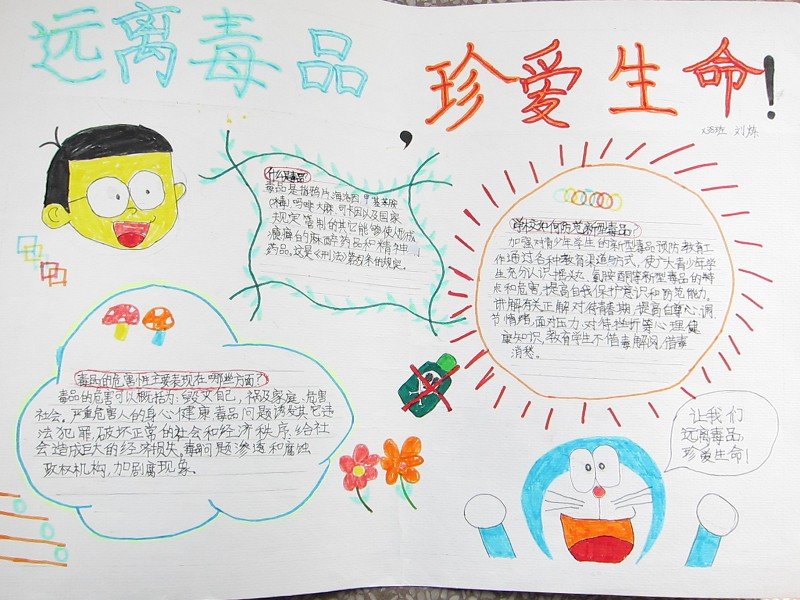 远离毒品
，
珍爱生命！
刘炼
什么是毒品
毒品是指鸦片、海洛因、甲基苯丙
(冰毒)吗啡、大麻、可卡因以及国家
规定管制的其它能够使人形成
瘾癖的麻醉药品和精神
药品。这是《刑法》第 条的规定。
学校如何防范新型毒品？
加强对青少年学生的新型毒品预防教育工
作通过各种教育渠道与方式，使广大青少年学
生充分认识摇头丸、氯胺酮等新型毒品的特
点和危害，提高自我保护意识和防范能力，
讲解有关正解对待青春期，提高自尊心，调
节情绪，面对压力、对待挫折等心理健
康知识，教育学生不借毒解闷，借毒
消愁。
毒品的危害性主要表现在哪些方面？
毒品的危害可以概括为：毁灭自己，祸及家庭、危害
社会。严重危害人的身心健康毒品问题诱发其它违
法犯罪，破坏正常的社会和经济秩序，给社
会造成巨大的经济损失。毒品问题渗透和腐蚀
政权机构，加剧腐败现象。
让我们
远离毒品
珍爱生命！